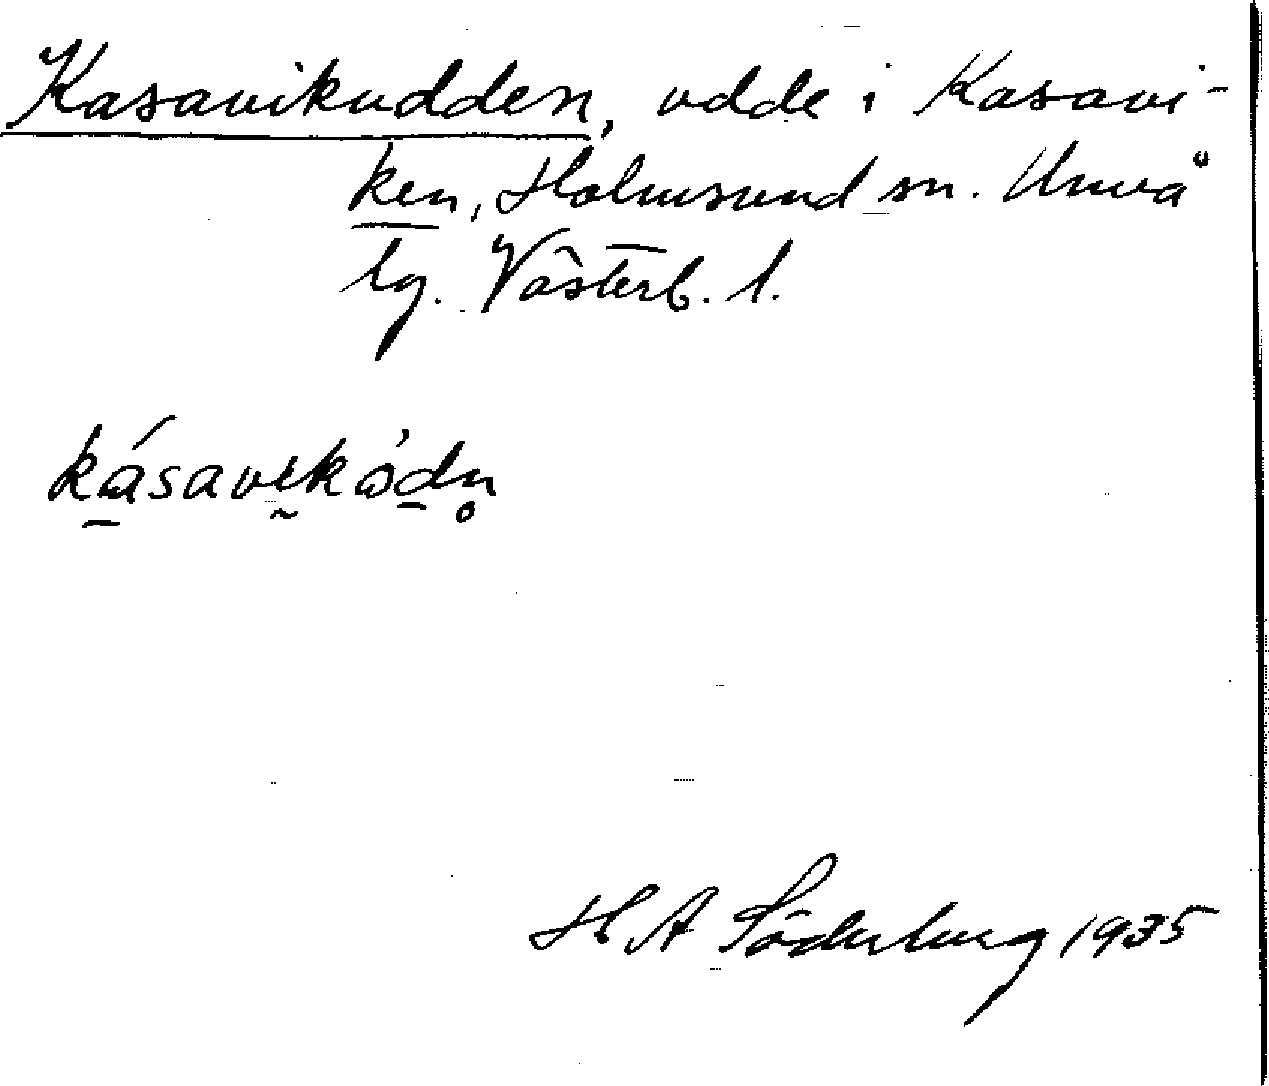 Kasavikudden, udde i Kasavi-
ken, Holmsund sn. Umeå
tg. Västerb. l.
H A Söderberg 1935